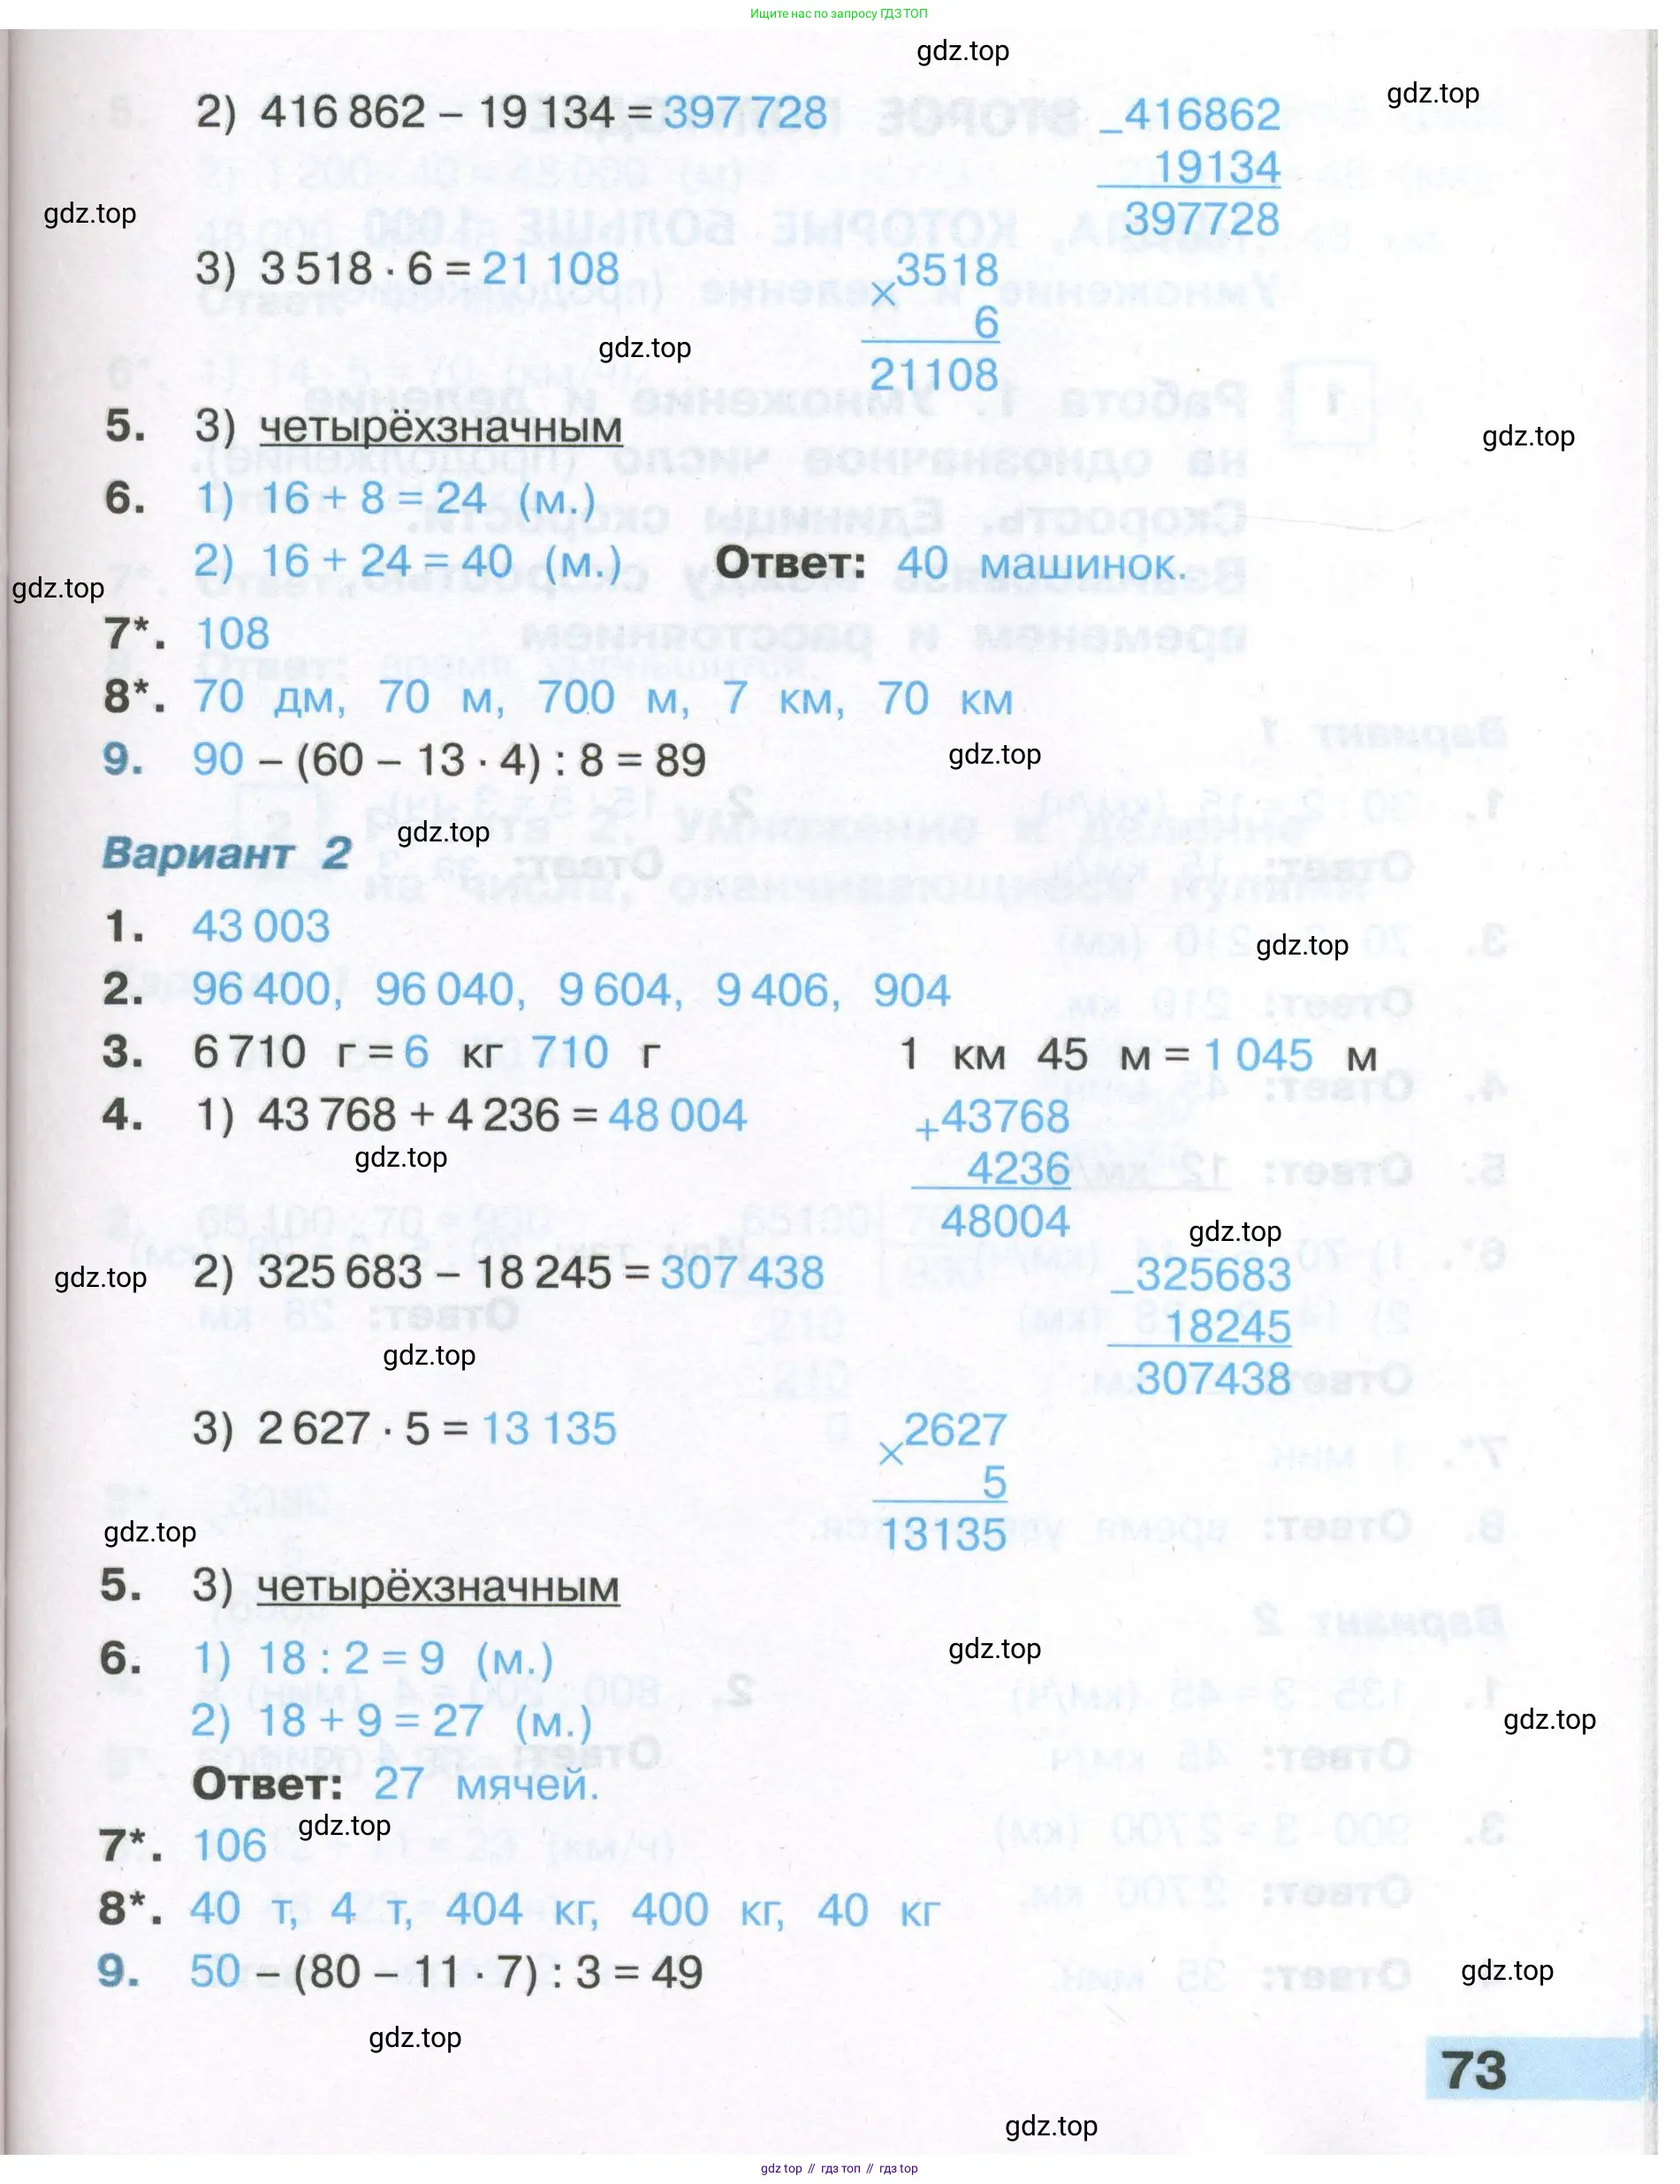 Ищите нас по запросу ГДЗ ТОП
gdz.top
gdz.top
2) 416 862 – 19 134 = 397 728
_416862
19134
397728
gdz.top
3) 3 518 · 6 = 21 108
×3518
6
21108
gdz.top
5. 3) четырёхзначным
gdz.top
6. 1) 16 + 8 = 24 (м.)
2) 16 + 24 = 40 (м.) Ответ: 40 машинок.
gdz.top
7*. 108
8*. 70 дм, 70 м, 700 м, 7 км, 70 км
9. 90 – (60 – 13 · 4) : 8 = 89
gdz.top
gdz.top
Вариант 2
1. 43 003
gdz.top
2. 96 400, 96 040, 9 604, 9 406, 904
3. 6 710 г = 6 кг 710 г 1 км 45 м = 1 045 м
4. 1) 43 768 + 4 236 = 48 004
+43768
4236
48004
gdz.top
gdz.top
2) 325 683 – 18 245 = 307 438
_325683
18245
307438
gdz.top
gdz.top
3) 2 627 · 5 = 13 135
×2627
5
13135
gdz.top
5. 3) четырёхзначным
6. 1) 18 : 2 = 9 (м.)
gdz.top
2) 18 + 9 = 27 (м.)
gdz.top
Ответ: 27 мячей.
gdz.top
7*. 106
8*. 40 т, 4 т, 404 кг, 400 кг, 40 кг
9. 50 – (80 – 11 · 7) : 3 = 49
gdz.top
gdz.top
73
gdz.top
gdz top // гдз топ // гдз top